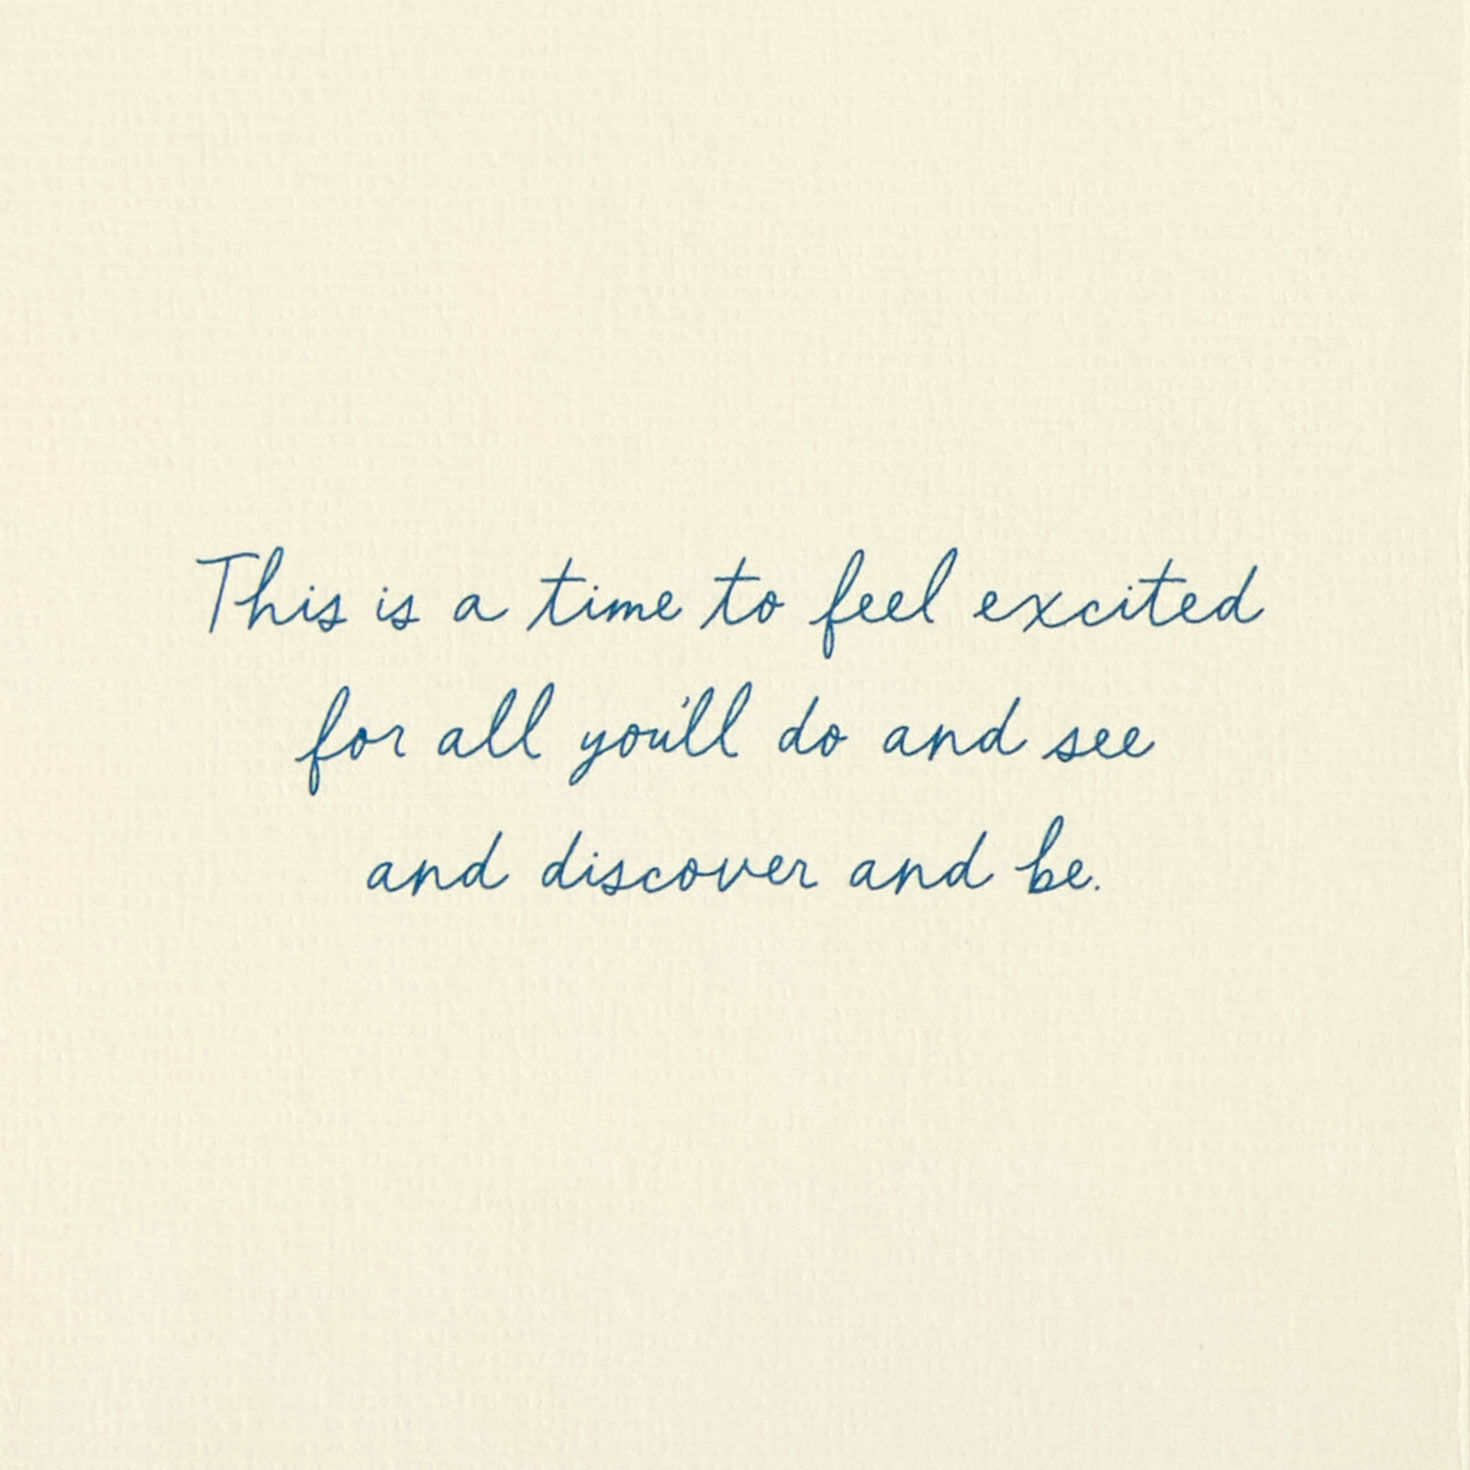 This is a time to feel excited
for all you'll do and see
and discover and be.